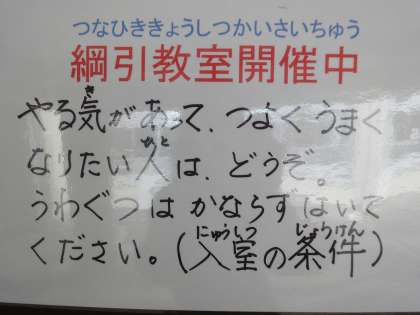 つなひききょうしつかいさいちゅう
綱引教室開催中
やる気があって、つよくうまく
なりたい人は、どうぞ。
うわぐつはかならずはいて
ください。(入室の条件)
き
ひと
にゅうしつ
じょうけん